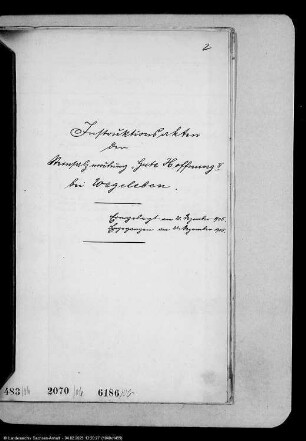 2
Instruktionsakten
der
Steinsalzmutung "Gute Hoffnung"
bei Wegeleben.
Eingelegt am Dezember
Eingegangen am Dezember
483 2070 6186
© Landesarchiv Sachsen-Anhalt